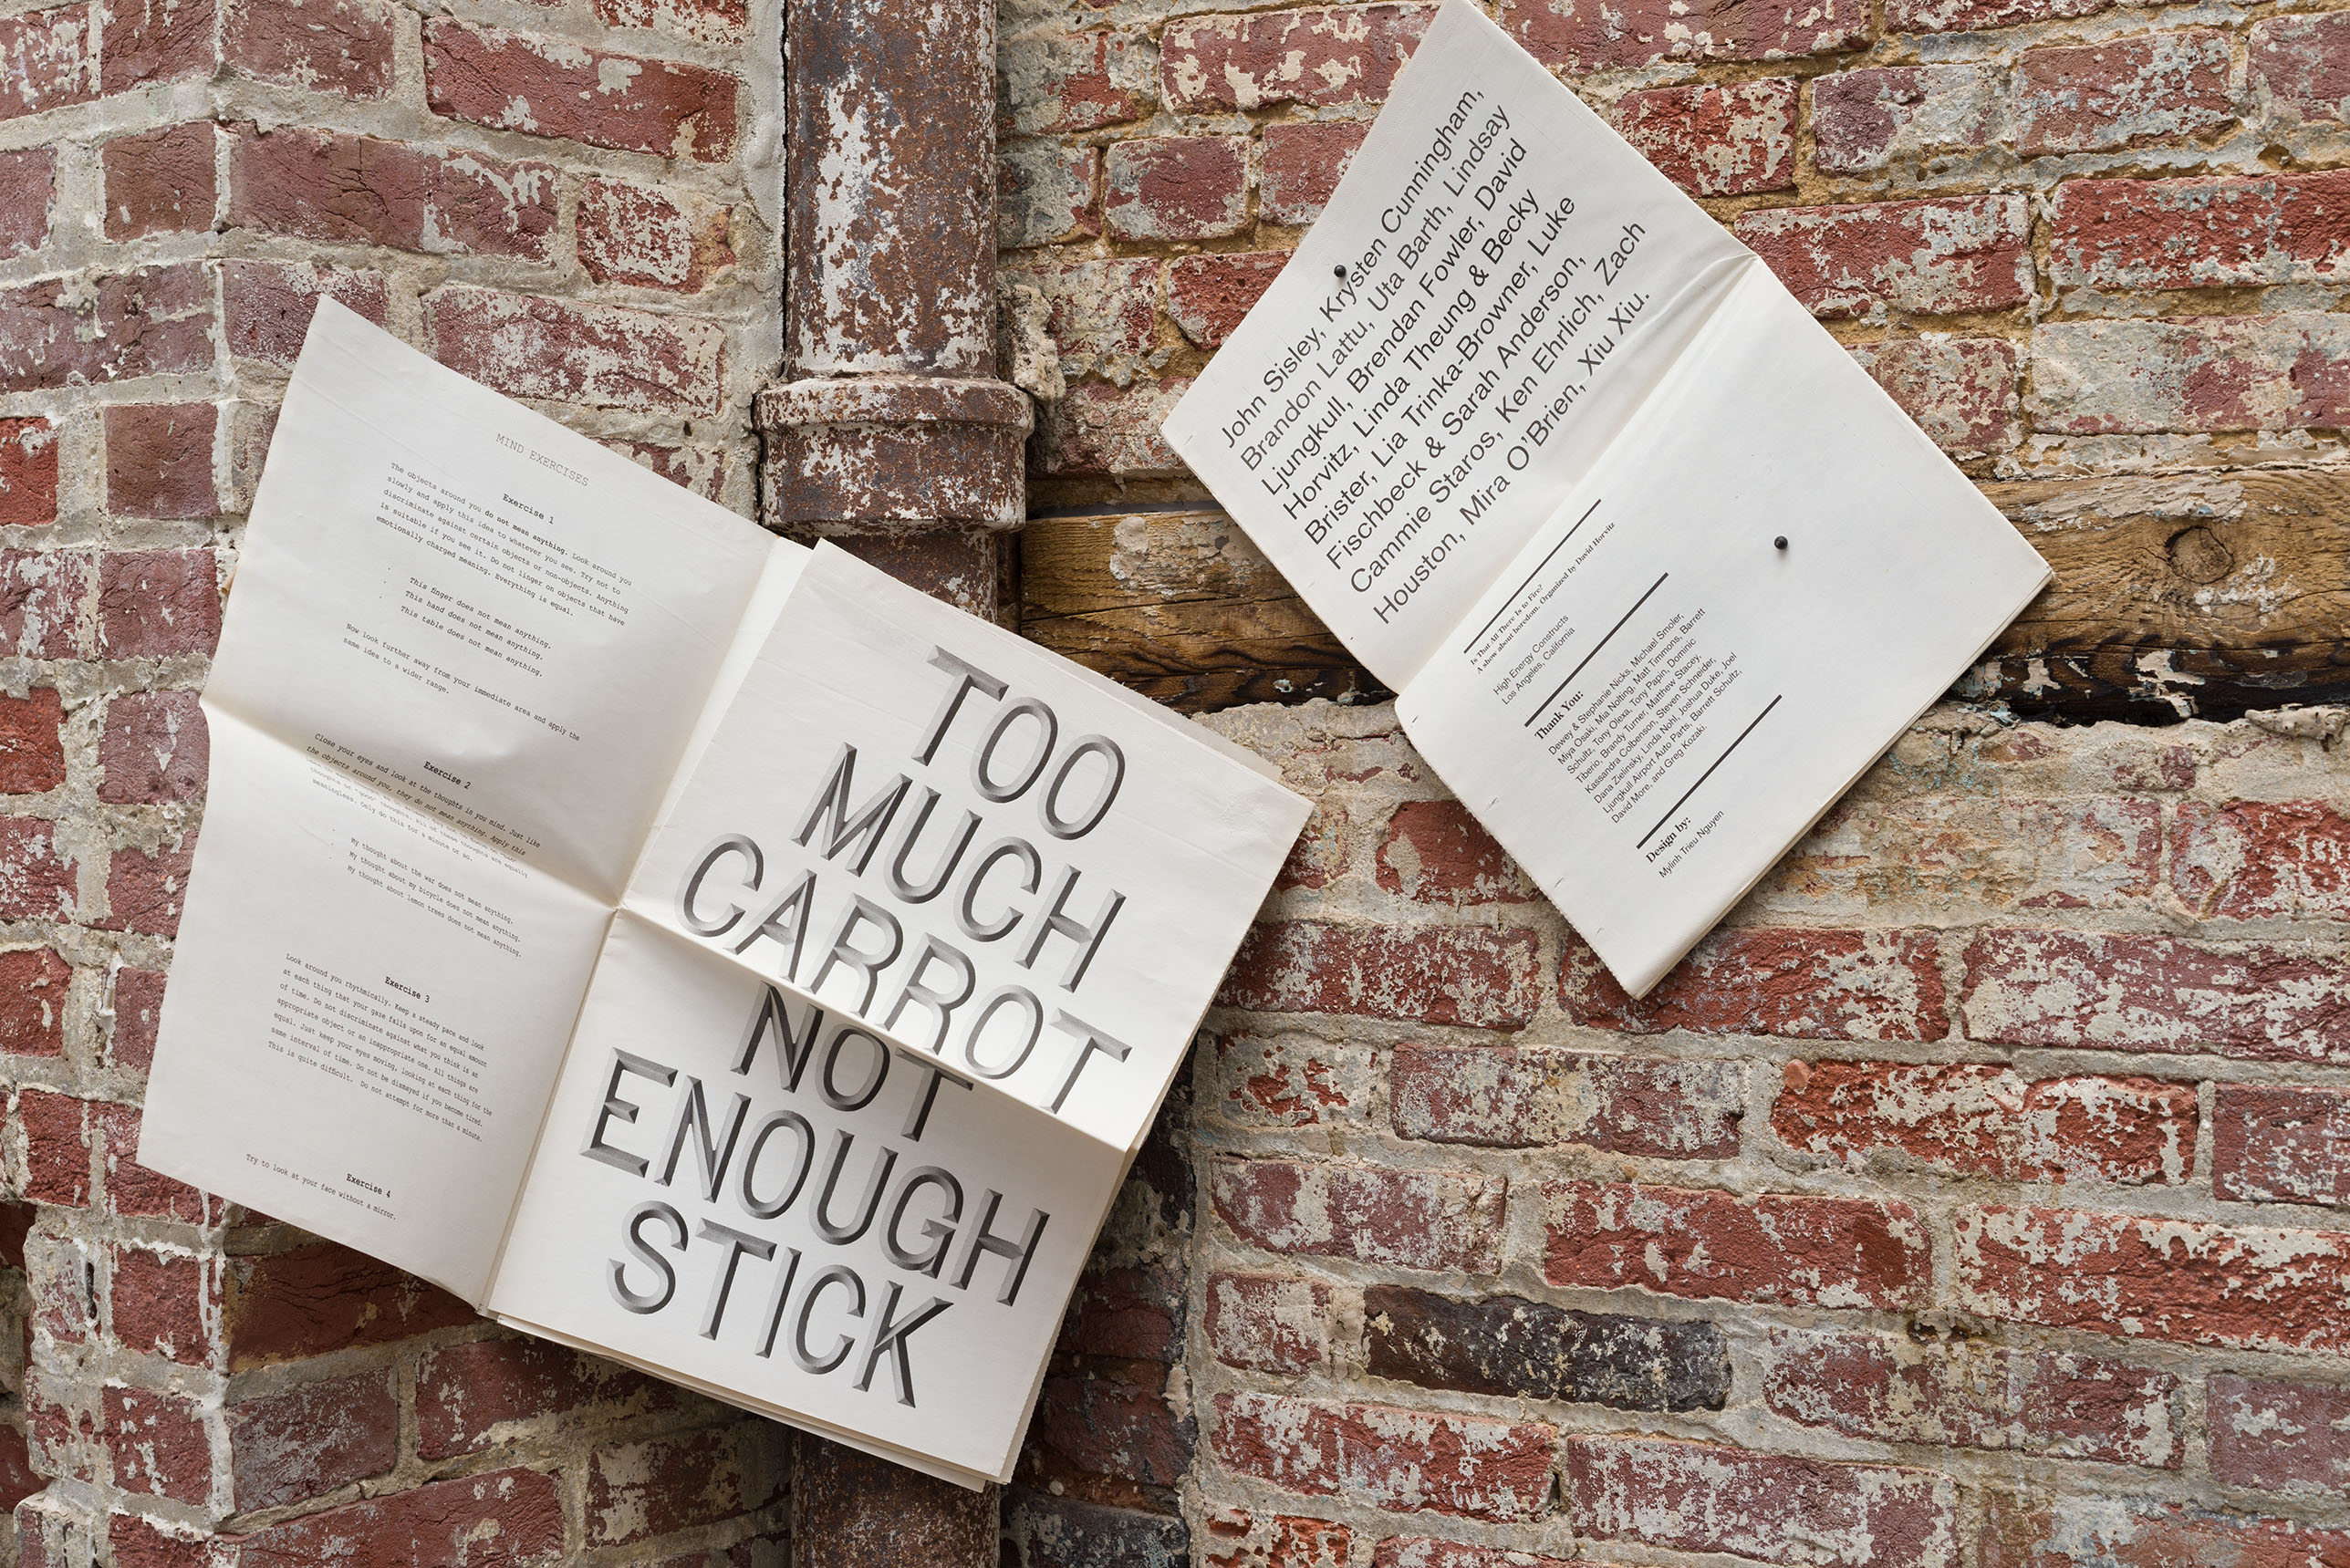 MIND EXERCISES
Exercise 1
The objects around you do not mean anything. Look around you
slowly and apply this idea to whatever you see. Try not to
discriminate against certain objects or non-objects. Anything
is suitable if you see it. Do not linger on objects that have
emotionally charged meaning. Everything is equal.
This finger does not mean anything.
This hand does not mean anything.
This table does not mean anything.
Now look further away from your immediate area and apply the
same idea to a wider range.
Exercise 2
Close your eyes and look at the thoughts in you mind. Just like
the objects around you, they do not mean anything. Apply this
thoughts or "good" thoughts. All of these thoughts are equally
meaningless. Only do this for a minute or so.
My thought about the war does not mean anything.
My thought about my bicycle does not mean anything.
My thought about lemon trees does not mean anything.
Exercise 3
Look around you rhythmically. Keep a steady pace and look
at each thing that your gaze falls upon for an equal amount
of time. Do not discriminate against what you think is an
appropriate object or an inappropriate one. All things are
equal. Just keep your eyes moving, looking at each thing for the
same interval of time. Do not be dismayed if you become tired.
This is quite difficult. Do not attempt for more than a minute.
Exercise 4
Try to look at your face without a mirror.
TOO
MUCH
CARROT
NOT
ENOUGH
STICK
John Sisley, Krysten Cunningham,
Brandon Lattu, Uta Barth, Lindsay
Ljungkull, Brendan Fowler, David
Horvitz, Linda Theung & Becky
Brister, Lia Trinka-Browner, Luke
Fischbeck & Sarah Anderson,
Cammie Staros, Ken Ehrlich, Zach
Houston, Mira O'Brien, Xiu Xiu.
Is That All There Is to Fire?
A show about boredom. Organized by David Horvitz
High Energy Constructs
Los Angeles, California
Thank You:
Dewey & Stephanie Nicks, Michael Smoler,
Miya Osaki, Mia Nolting, Matt Timmons, Barrett
Schultz, Tony Olexa, Tony Papin, Dominic
Tiberio, Brandy Turner, Matthew Stacey,
Kassandra Colbenson, Steven Schneider,
Dana Zielinsky, Linda Nuhl, Joshua Duke, Joel
Ljungkull Airport Auto Parts, Barrett Schultz,
David More, and Greg Kozaki.
Design by:
Mylinh Trieu Nguyen